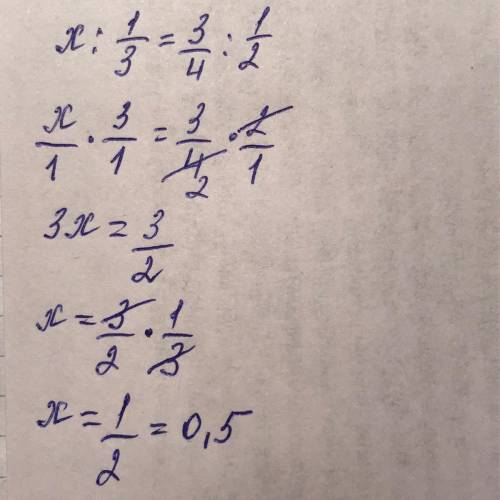 x : 1/3 = 3/4 : 1/2
x/1 · 3/1 = 3/4 2 · 2/1
3x = 3/2
x = 3/2 · 1/3
x = 1/2 = 0,5